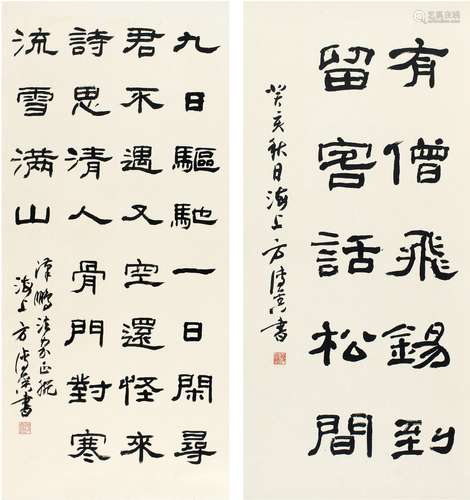 九日驅馳一日閑尋
君不遇又空還怪來
詩思清人骨門對寒
流雪滿山
鵬法家正腕
海上方傳鑫書
有僧飛錫到
留客話松間
癸亥秋日海上方傳鑫書